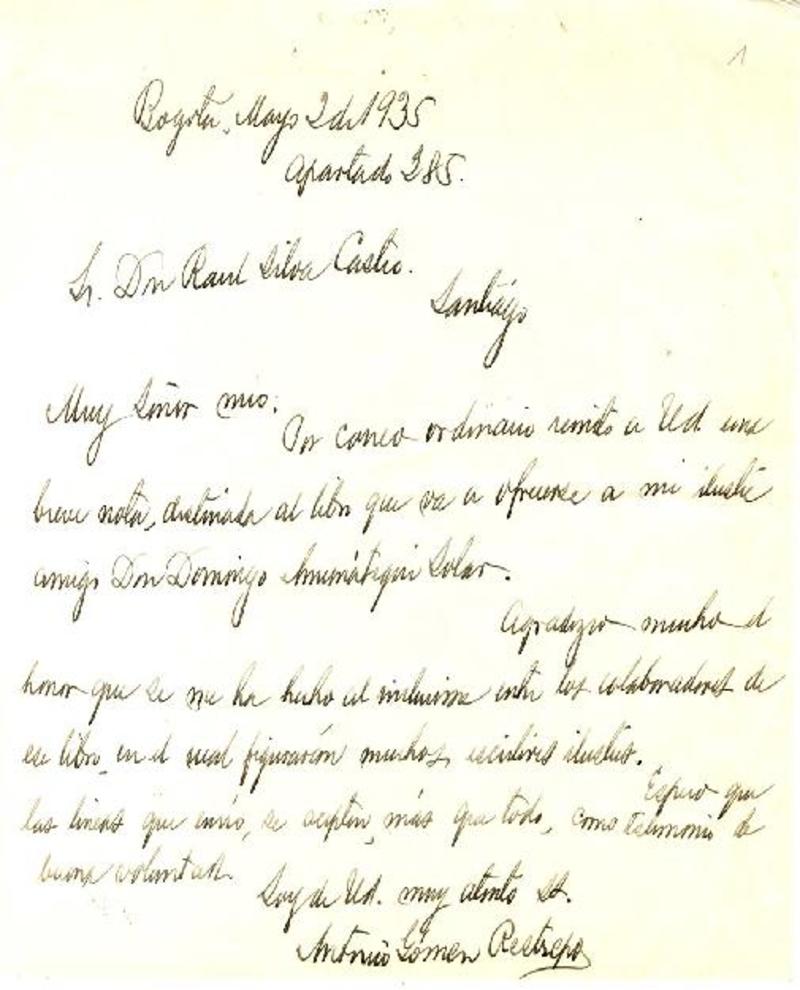 1
Bogotá, Mayo 2 de 1935
Apartado 285.
Sr. Don Raul Silva Castro.
Santiago
Muy Señor mio:
Por correo ordinario remito a Ud. una
breve nota, destinada al libro que va a ofrecerse a mi ilustre
amigo Don Domingo Amunátegui Solar.
Agradezco mucho el
honor que se me ha hecho al incluirme entre los colaboradores de
ese libro, en el cual figurarán muchos escritores ilustres.
Espero que
las líneas que envío, se acepten, más que todo, como testimonio de
buena voluntad.
Soy de Ud. muy atento SS.
Antonio Gómez Restrepo